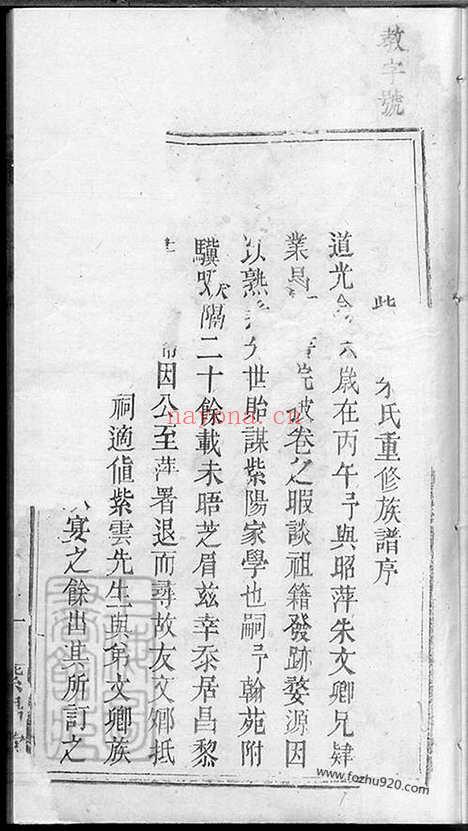 教字號
朱氏重修族譜序
道光 六歲在丙午予與昭萍朱文卿兄肄
業 披卷之暇談祖籍發跡婺源因
以熟 世貽謀紫陽家學也嗣予翰苑附
驥 隔二十餘載未晤芝眉茲幸忝居昌黎
因公至萍署退而尋故友文卿抵
祠適值紫雲先生與弟文卿族
宴之餘出其所訂之
nayona.cn
www.fozhu920.com